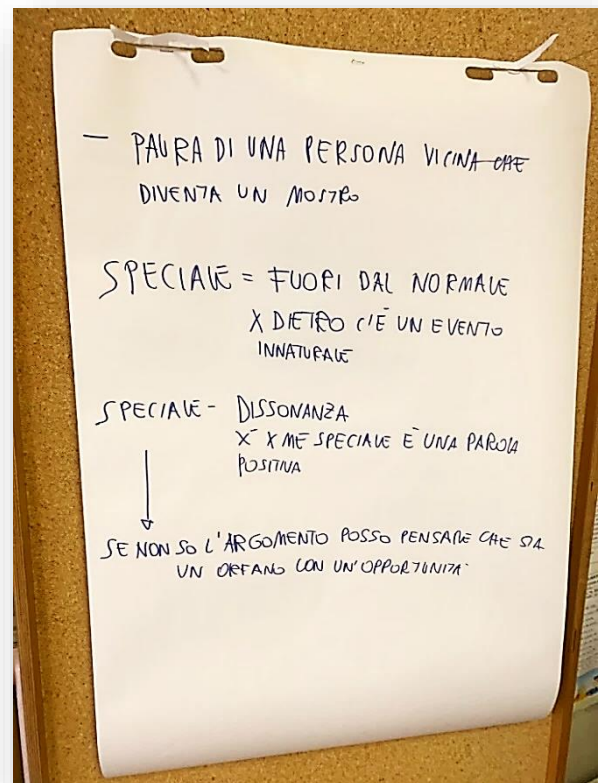 — PAURA DI UNA PERSONA VICINA CHE
DIVENTA UN MOSTRO
SPECIALE = FUORI DAL NORMALE
X DIETRO C'È UN EVENTO
INNATURALE
SPECIALE - DISSONANZA
X X ME SPECIALE È UNA PAROLA
POSITIVA
SE NON SO L'ARGOMENTO POSSO PENSARE CHE SIA
UN ORFANO CON UN'OPPORTUNITÀ